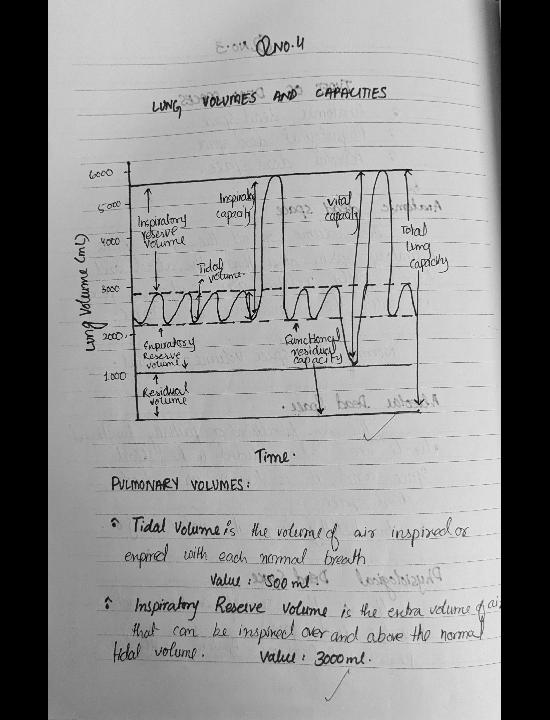 QNO.4
LUNG VOLUMES AND CAPACITIES
6000
5000
4000
3000
2000
1000
Lung Volume (mL)
Inspiratory
reserve
volume
Tidal
volume
Inspiratory
capacity
Vital
capacity
Total
lung
capacity
Expiratory
Reserve
volume
Functional
residual
capacity
Residual
volume
Time.
PULMONARY VOLUMES:
Tidal Volume is the volume of air inspired or
expired with each normal breath
Value : 500 ml.
Inspiratory Reserve Volume is the extra volume of air
that can be inspired over and above the normal
tidal volume. Value : 3000ml.